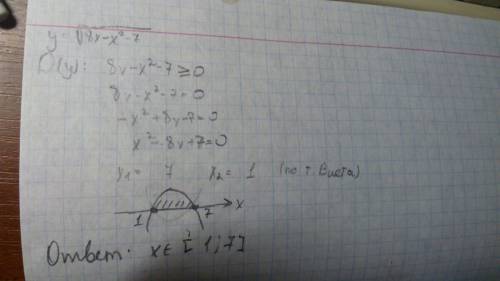 y = √8x-x²-7
D(y): 8x-x²-7 ≥ 0
8x-x²-7=0
-x²+8x-7=0
x²-8x+7=0
x₁= 7 x₂= 1 (по т. Виета)
1 7 x
Ответ. x ∈ [1;7]